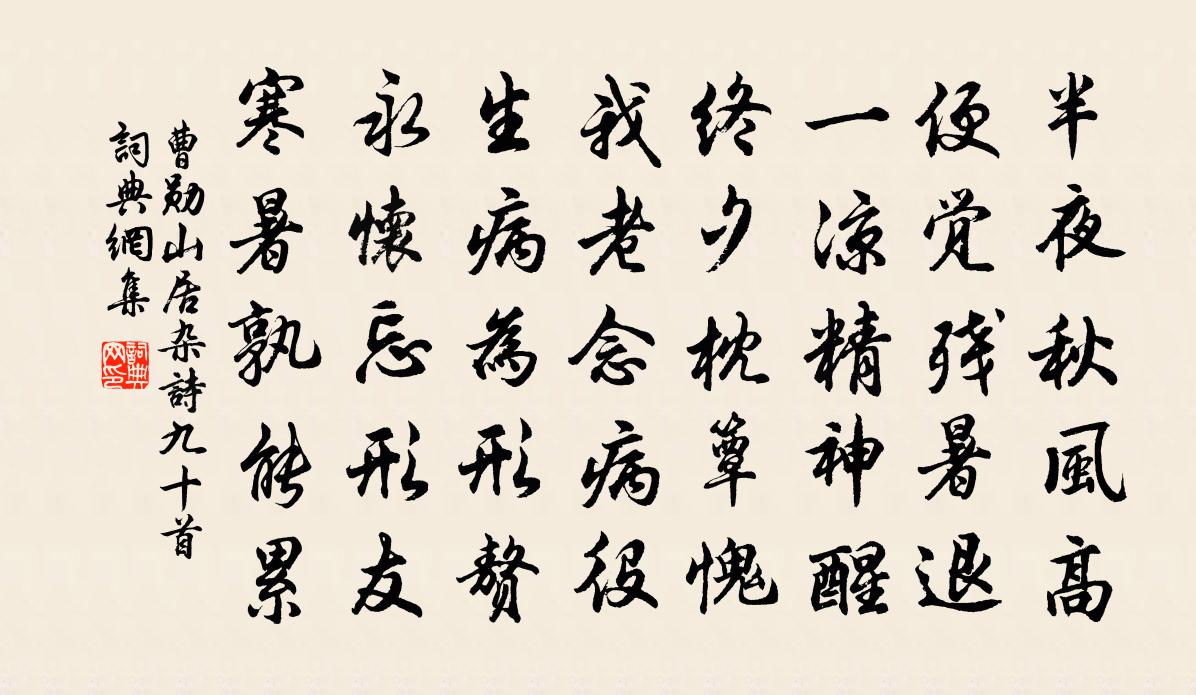 半夜秋風高
便觉残暑退
一涼精神醒
终夕枕簟愧
我老念病役
生病為形赘
永懷忘形友
寒暑孰能累
曹勋山居杂詩九十首
詞典網集
詞典
网印